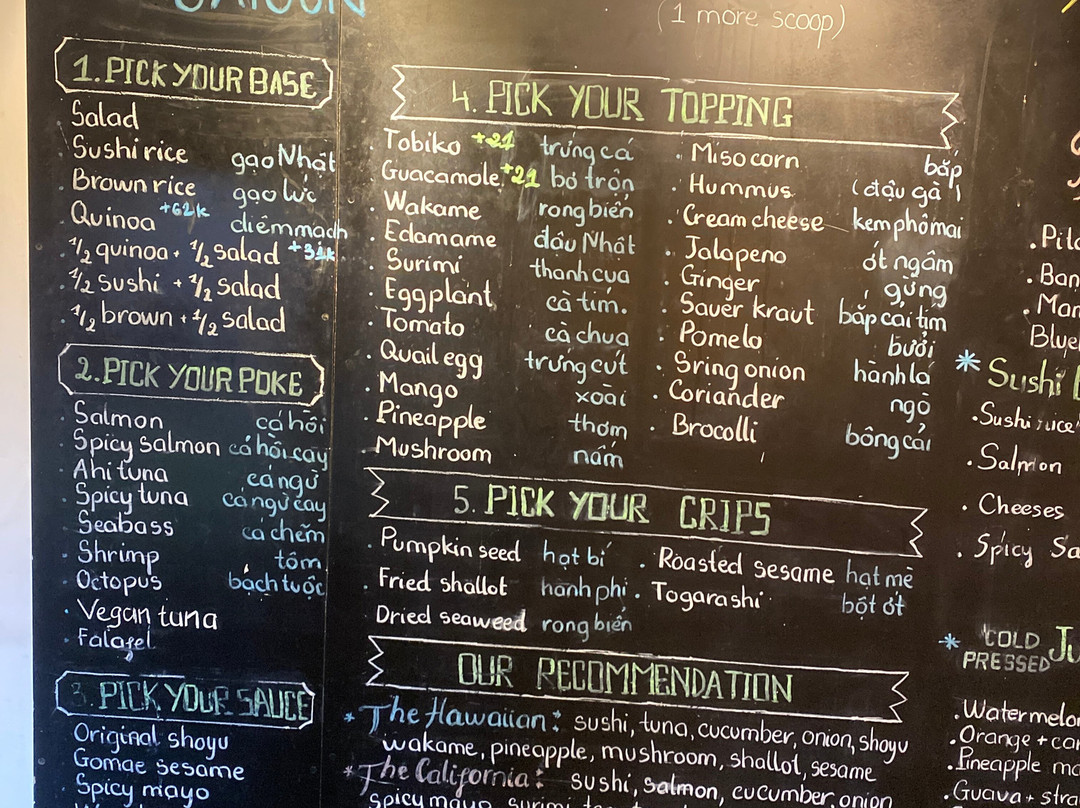 (1 more scoop)
1. PICK YOUR BASE
Salad
Sushi rice gạo Nhật
Brown rice gạo lức
Quinoa +62k diêm mạch
1/2 quinoa + 1/2 salad +31k
1/2 sushi + 1/2 salad
1/2 brown + 1/2 salad
2. PICK YOUR POKE
Salmon cá hồi
Spicy salmon cá hồi cay
Ahi tuna cá ngừ
Spicy tuna cá ngừ cay
Seabass cá chẽm
Shrimp tôm
Octopus bạch tuộc
Vegan tuna
Falafel
3. PICK YOUR SAUCE
Original shoyu
Gomae sesame
Spicy mayo
4. PICK YOUR TOPPING
Tobiko +21 trứng cá
Guacamole +21 bơ trộn
Wakame rong biển
Edamame đậu Nhật
Surimi thanh cua
Eggplant cà tím.
Tomato cà chua
Quail egg trứng cút
Mango xoài
Pineapple thơm
Mushroom nấm
Miso corn bắp
Hummus (đậu gà)
Cream cheese kem phô mai
Jalapeno ớt ngâm
Ginger gừng
Sauer kraut bắp cải tím
Pomelo bưởi
Sring onion hành lá
Coriander ngò
Brocolli bông cải
5. PICK YOUR CRIPS
Pumpkin seed hạt bí
Fried shallot hành phi
Dried seaweed rong biển
Roasted sesame hạt mè
Togarashi bột ớt
OUR RECOMMENDATION
* The Hawaiian: sushi, tuna, cucumber, onion, shoyu
wakame, pineapple, mushroom, shallot, sesame
* The California: sushi, salmon, cucumber, onion
Spicy mayo, surimi
* Sushi
Sushi rice
Salmon
Cheeses
Spicy
* COLD
PRESSED
Orange +
Pineapple
Guava +